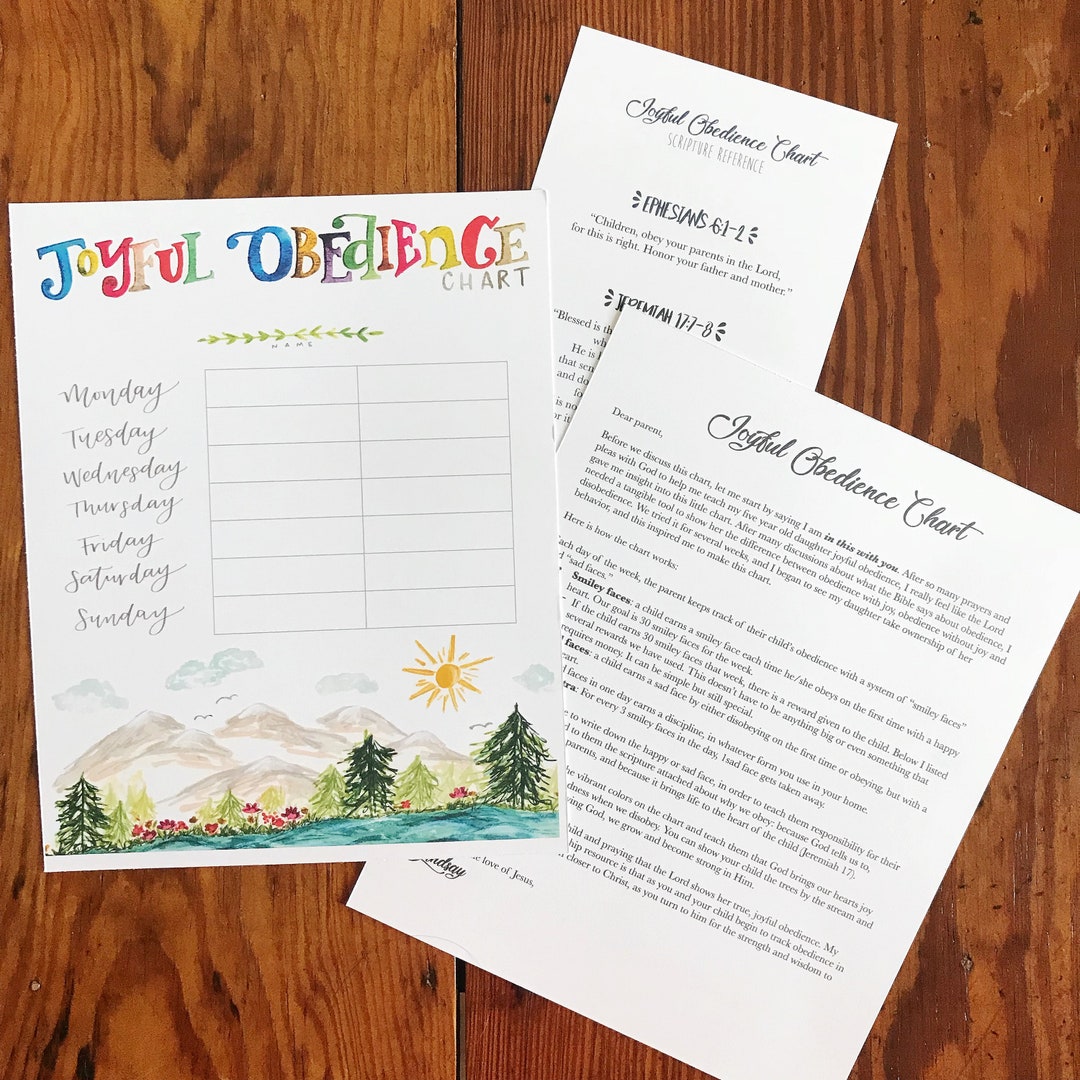 JOYFUL OBEDIENCE
CHART
NAME
Monday
Tuesday
Wednesday
Thursday
Friday
Saturday
Sunday
Joyful Obedience Chart
SCRIPTURE REFERENCE
EPHESIANS 6:1-2
“Children, obey your parents in the Lord,
for this is right. Honor your father and mother.”
JEREMIAH 17:7-8
“Blessed is th
He is
that sen
and do
is no
or it
Joyful Obedience Chart
Dear parent,
Before we discuss this chart, let me start by saying I am in this with you. After so many prayers and
pleas with God to help me teach my five year old daughter joyful obedience, I really feel like the Lord
gave me insight into this little chart. After many discussions about what the Bible says about obedience, I
needed a tangible tool to show her the difference between obedience with joy, obedience without joy and
disobedience. We tried it for several weeks, and I began to see my daughter take ownership of her
behavior, and this inspired me to make this chart.
Here is how the chart works:
each day of the week, the parent keeps track of their child’s obedience with a system of “smiley faces”
“sad faces.”
Smiley faces: a child earns a smiley face each time he/she obeys on the first time with a happy
heart. Our goal is 30 smiley faces for the week.
If the child earns 30 smiley faces that week, there is a reward given to the child. Below I listed
several rewards we have used. This doesn’t have to be anything big or even something that
requires money. It can be simple but still special.
faces: a child earns a sad face by either disobeying on the first time or obeying, but with a
heart.
faces in one day earns a discipline, in whatever form you use in your home.
tra: For every 3 smiley faces in the day, 1sad face gets taken away.
to write down the happy or sad face, in order to teach them responsibility for their
d to them the scripture attached about why we obey: because God tells us to,
parents, and because it brings life to the heart of the child (Jeremiah 17).
he vibrant colors on the chart and teach them that God brings our hearts joy
dness when we disobey. You can show your child the trees by the stream and
ing God, we grow and become strong in Him.
hild and praying that the Lord shows her true, joyful obedience. My
hip resource is that as you and your child begin to track obedience in
closer to Christ, as you turn to him for the strength and wisdom to
e love of Jesus,
Lindsay